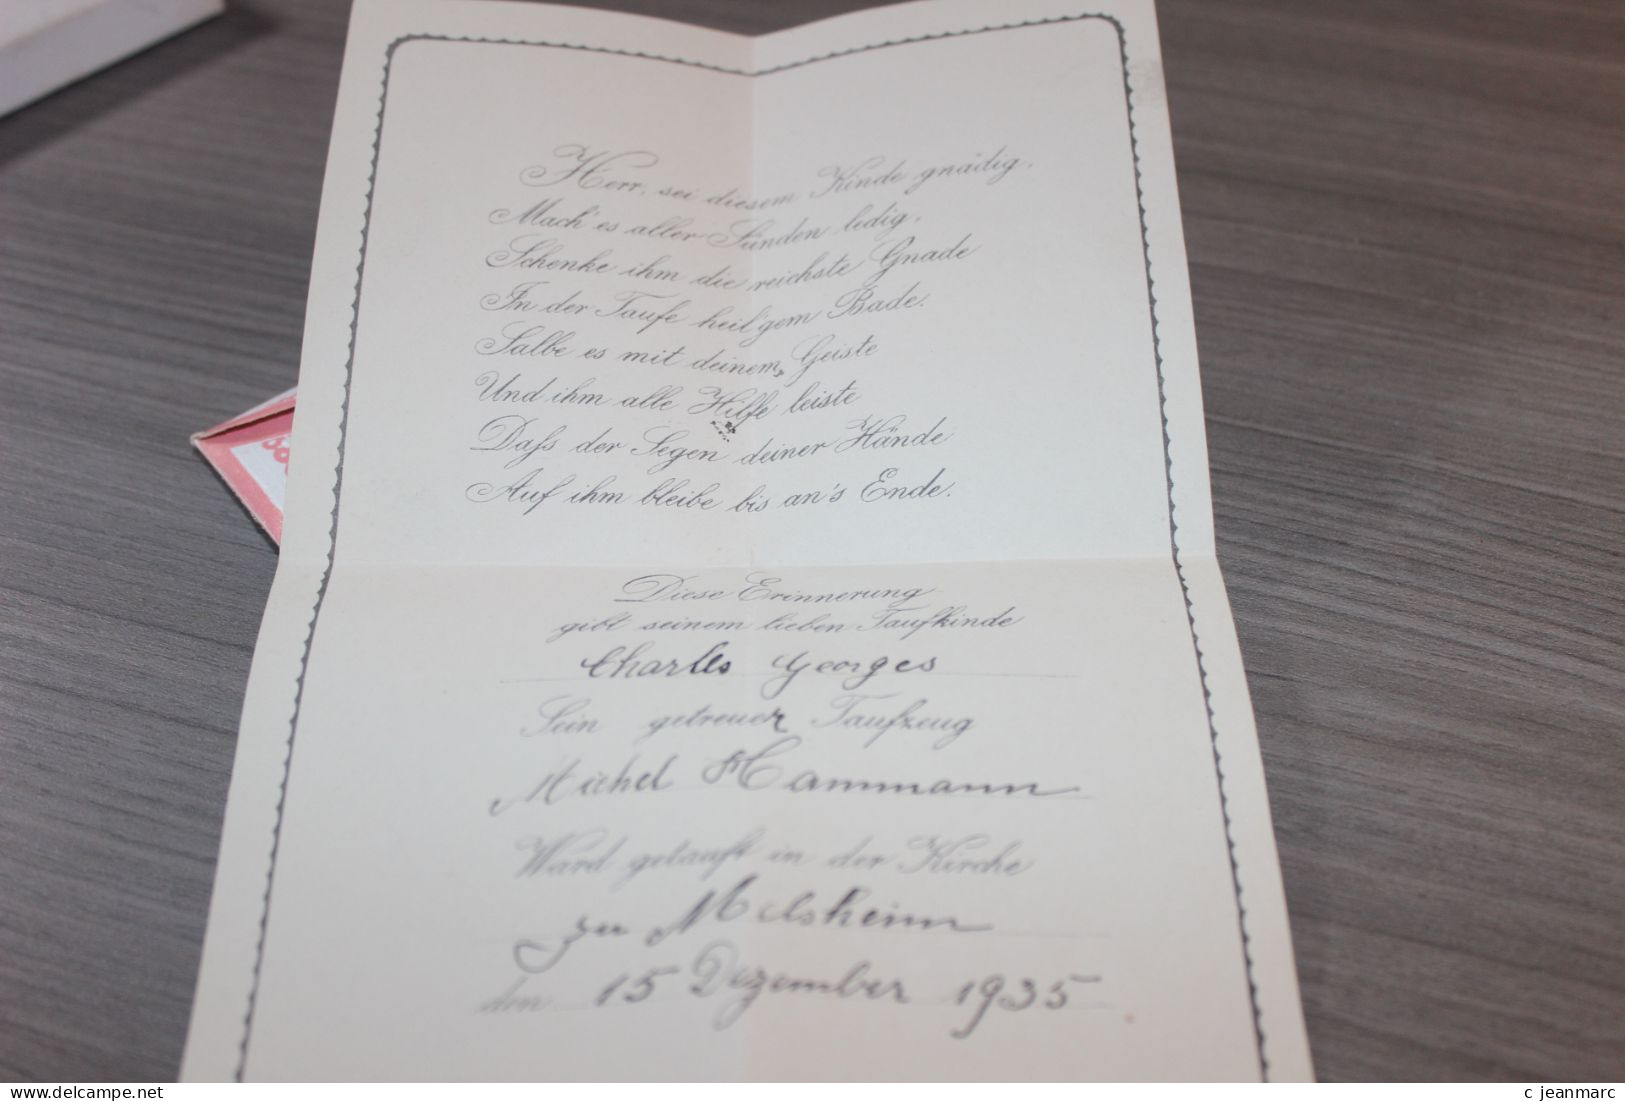 Herr, sei diesem Kinde gnädig,
Mach' es aller Sünden ledig,
Schenke ihm die reichste Gnade
In der Taufe heil'gem Bade.
Salbe es mit deinem Geiste
Und ihm alle Hilfe leiste
Daſs der Segen deiner Hände
Auf ihm bleibe bis an's Ende.
Diese Erinnerung
gibt seinem lieben Taufkinde
Charles Georges
Sein getreuer Taufzeug
Michel Hammann
Ward getauft in der Kirche
zu Melsheim
den 15 Dezember 1935
delcampe.net
c_jeanmarc